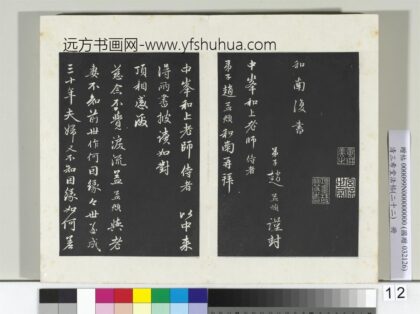 远方书画网-www.yfshuhua.com
和南復書
弟子趙孟頫謹封
中峯和上老師侍者
弟子趙孟頫和南再拜
中峯和上老師侍者 以中來
得所書披讀如對
頂相感激
慈念不覺淚流蓋孟頫與老
妻不知前世作何因緣今世遂成
三十年夫婦又不知因緣如何差
12